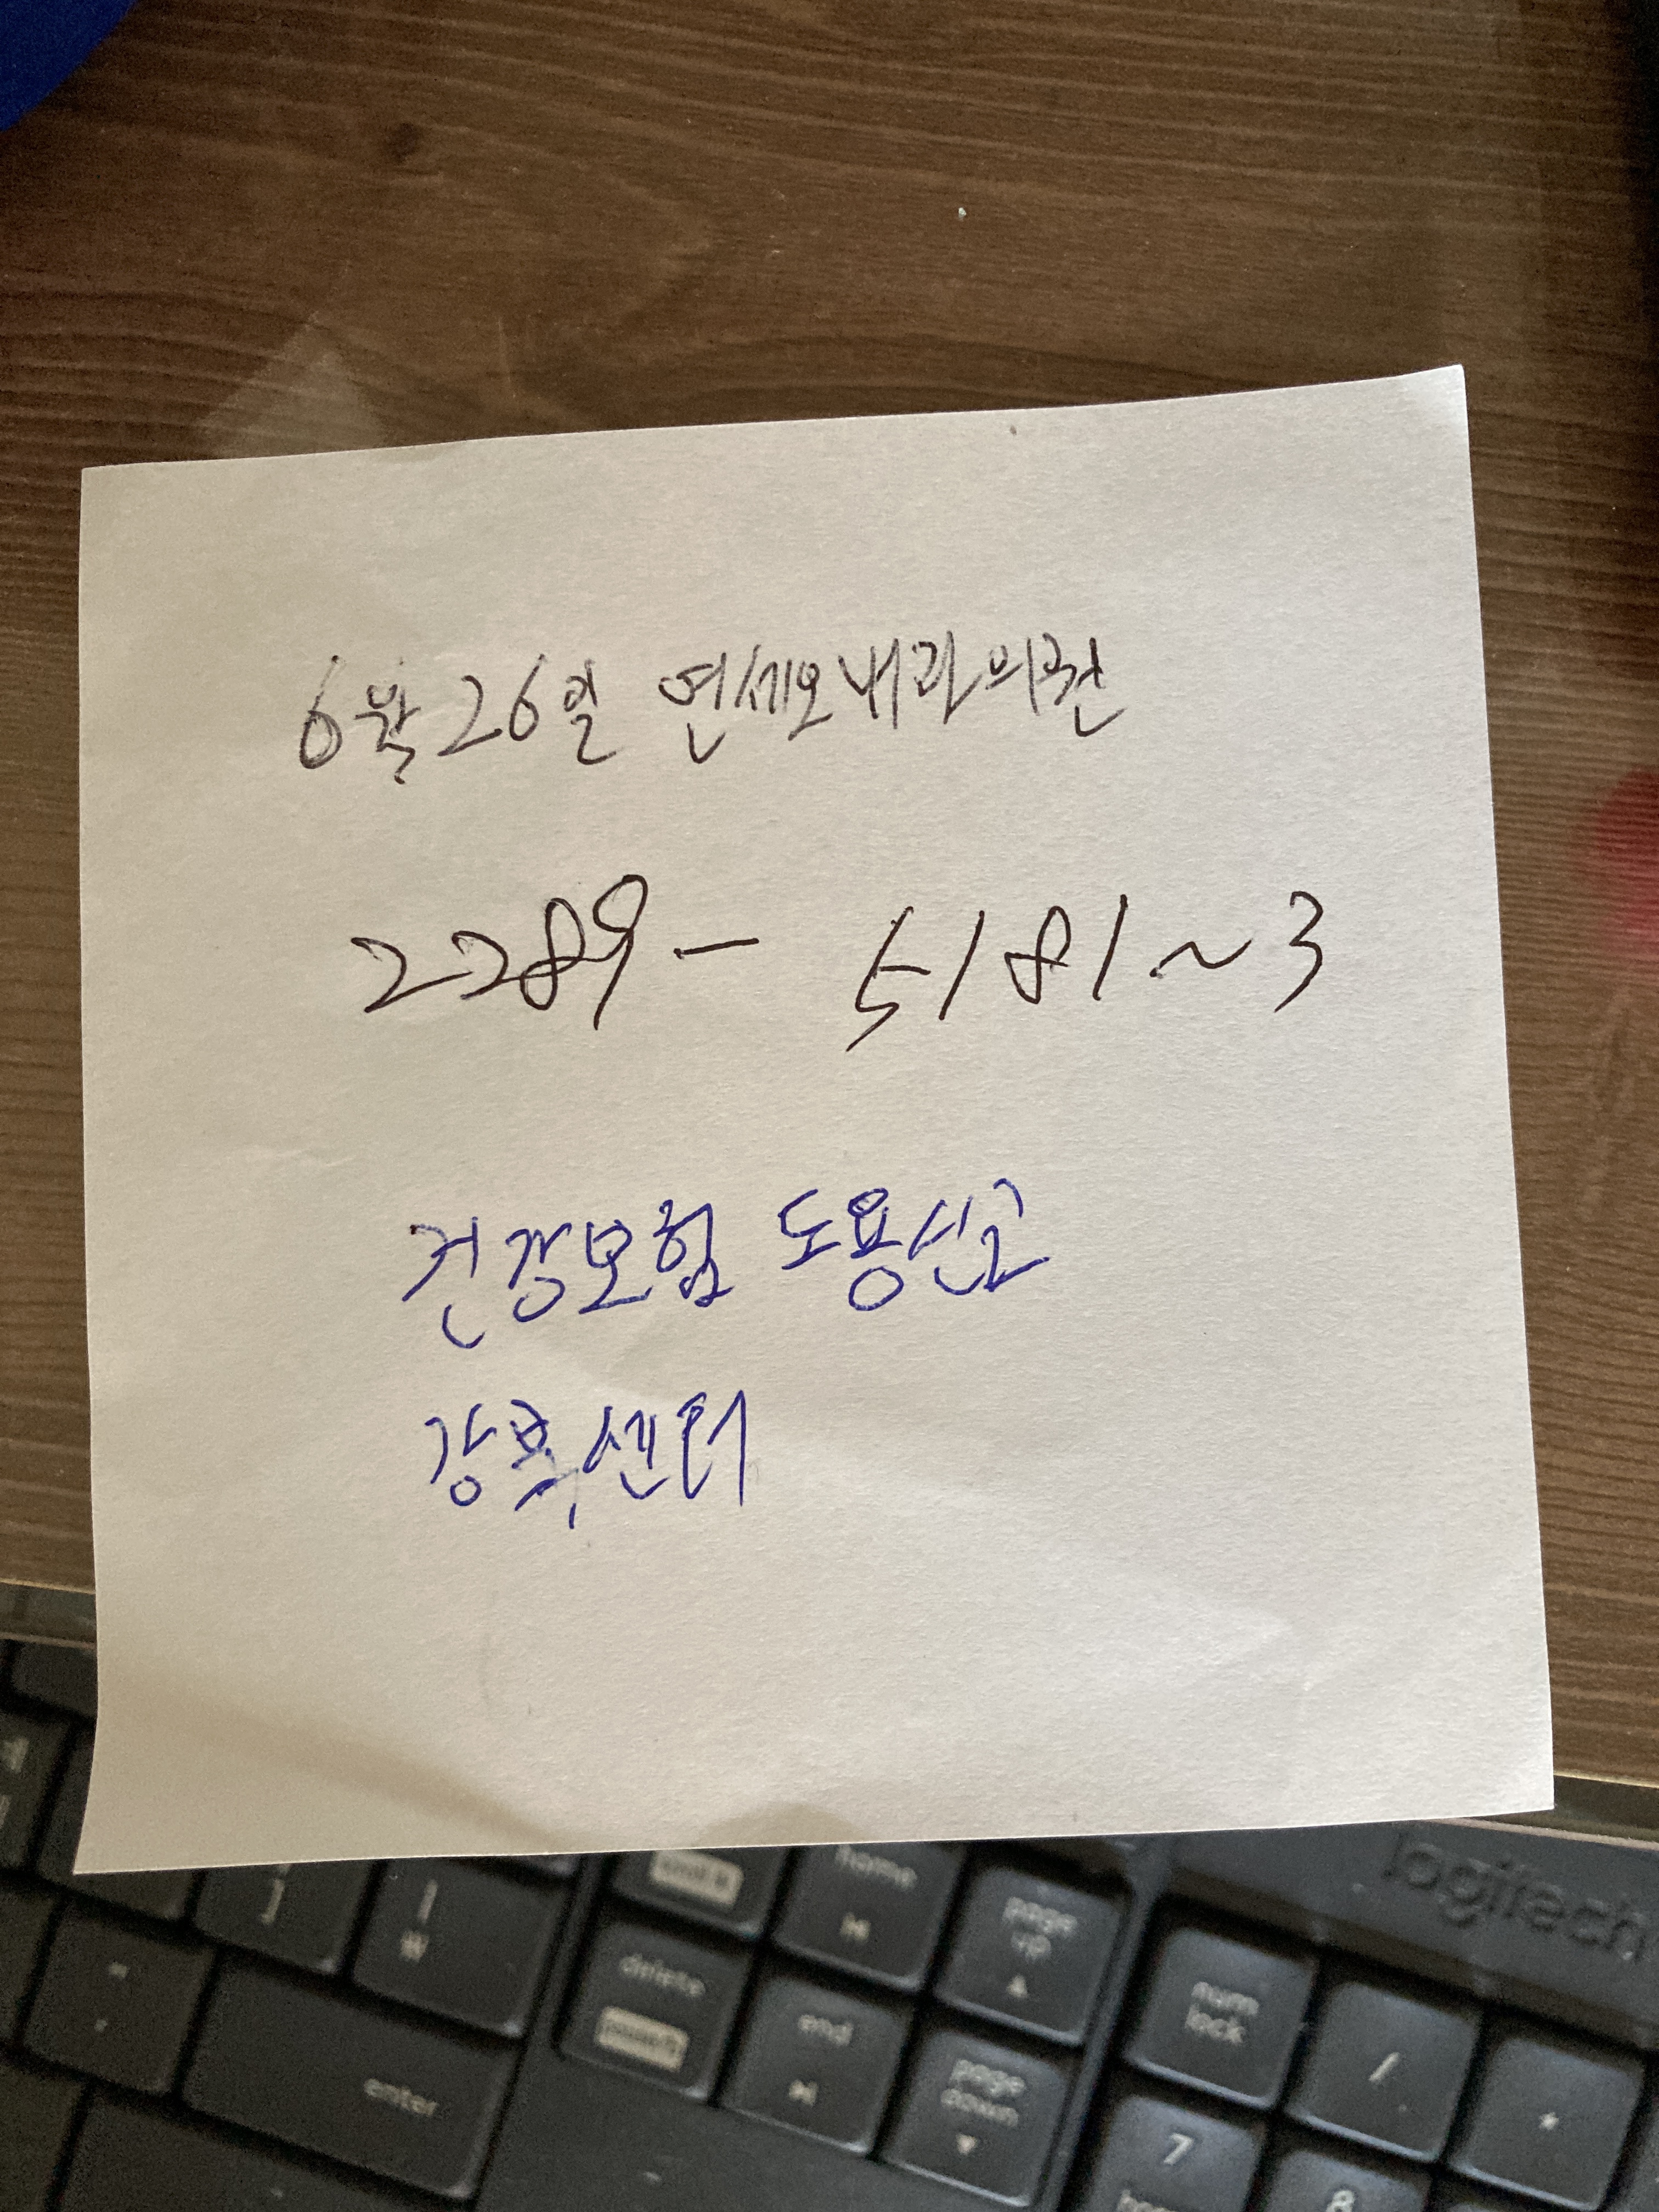 6월 26일 연세오내과의원
2289 - 5181 ~ 3
건강보험 도용신고
강북센터
logitech
home
page up
num lock
/
*
delete
end
page down
enter
7
8